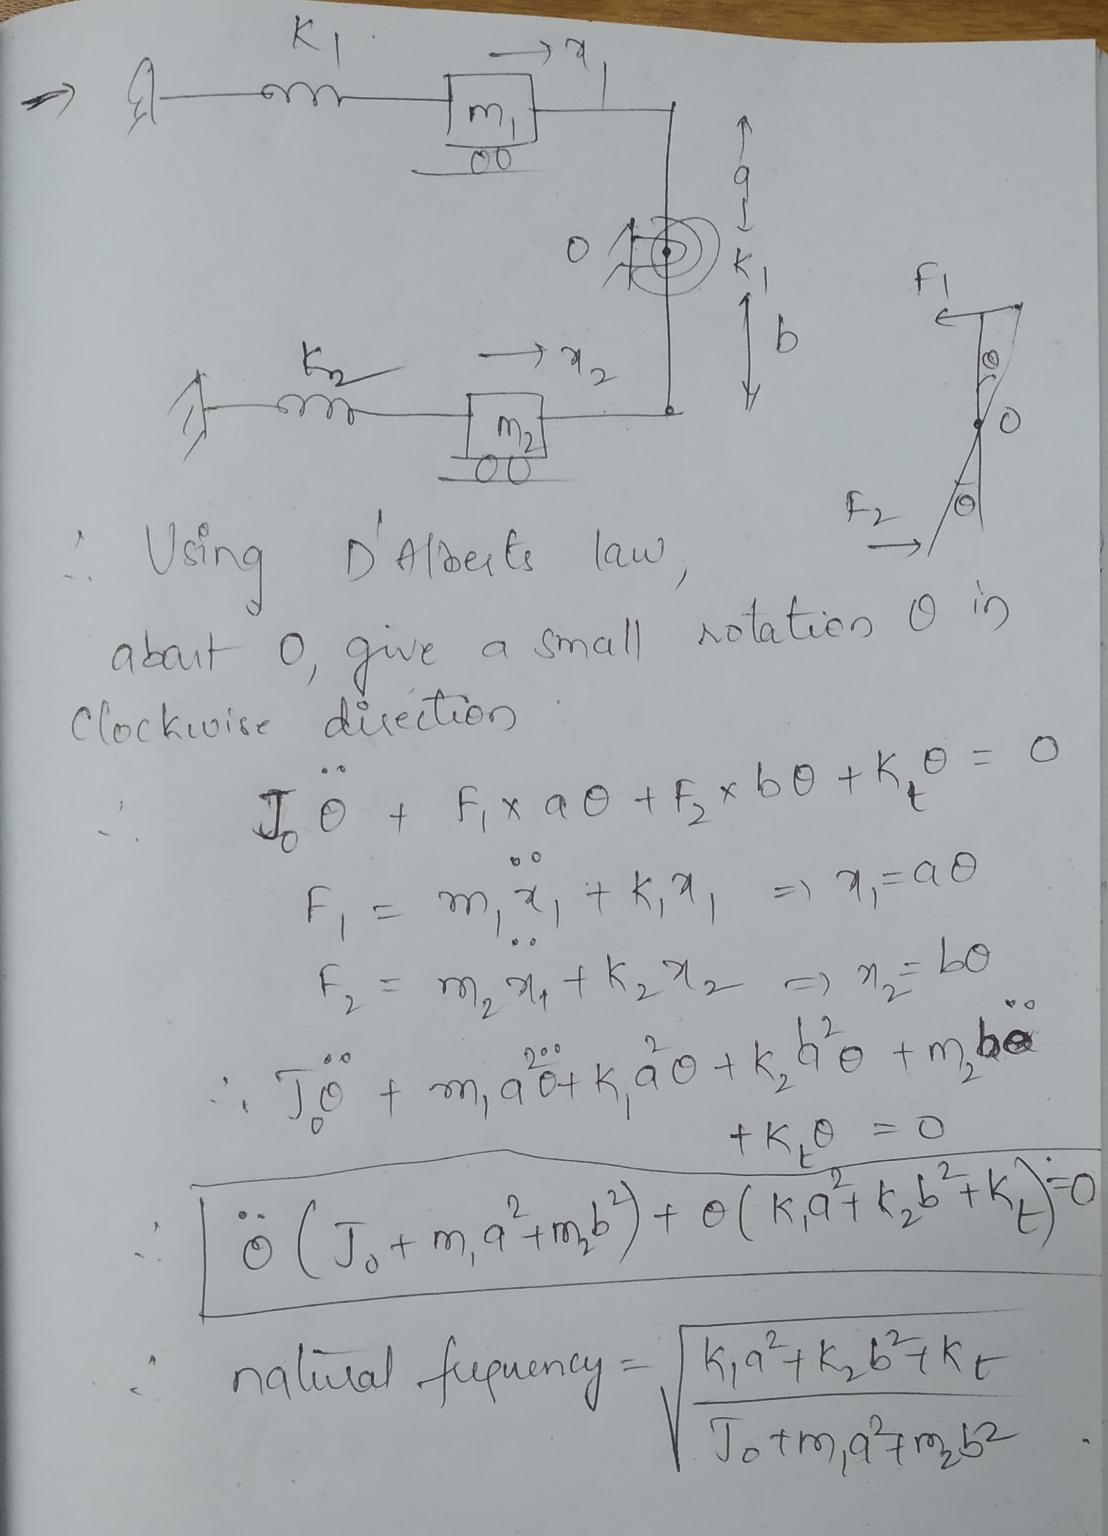 K₁
→ x₁
m₁
a
O
K₁
b
K₂
→ x₂
m₂
F₁
θ
O
θ
F₂
∴ Using D'Alberts law,
about O, give a small rotation θ in
Clockwise direction
∴ J₀θ̈ + F₁ × aθ + F₂ × bθ + K_tθ = 0
F₁ = m₁ẍ₁ + K₁x₁ ⇒ x₁ = aθ
F₂ = m₂ẍ₁ + K₂x₂ ⇒ x₂ = bθ
∴ J₀θ̈ + m₁a²θ̈ + K₁a²θ + K₂b²θ + m₂bθ̈
+ K_tθ = 0
∴ θ̈ (J₀ + m₁a² + m₂b²) + θ (K₁a² + K₂b² + K_t) = 0
∴ natural fequency = √((K₁a² + K₂b² + K_t) / (J₀ + m₁a² + m₂b²))